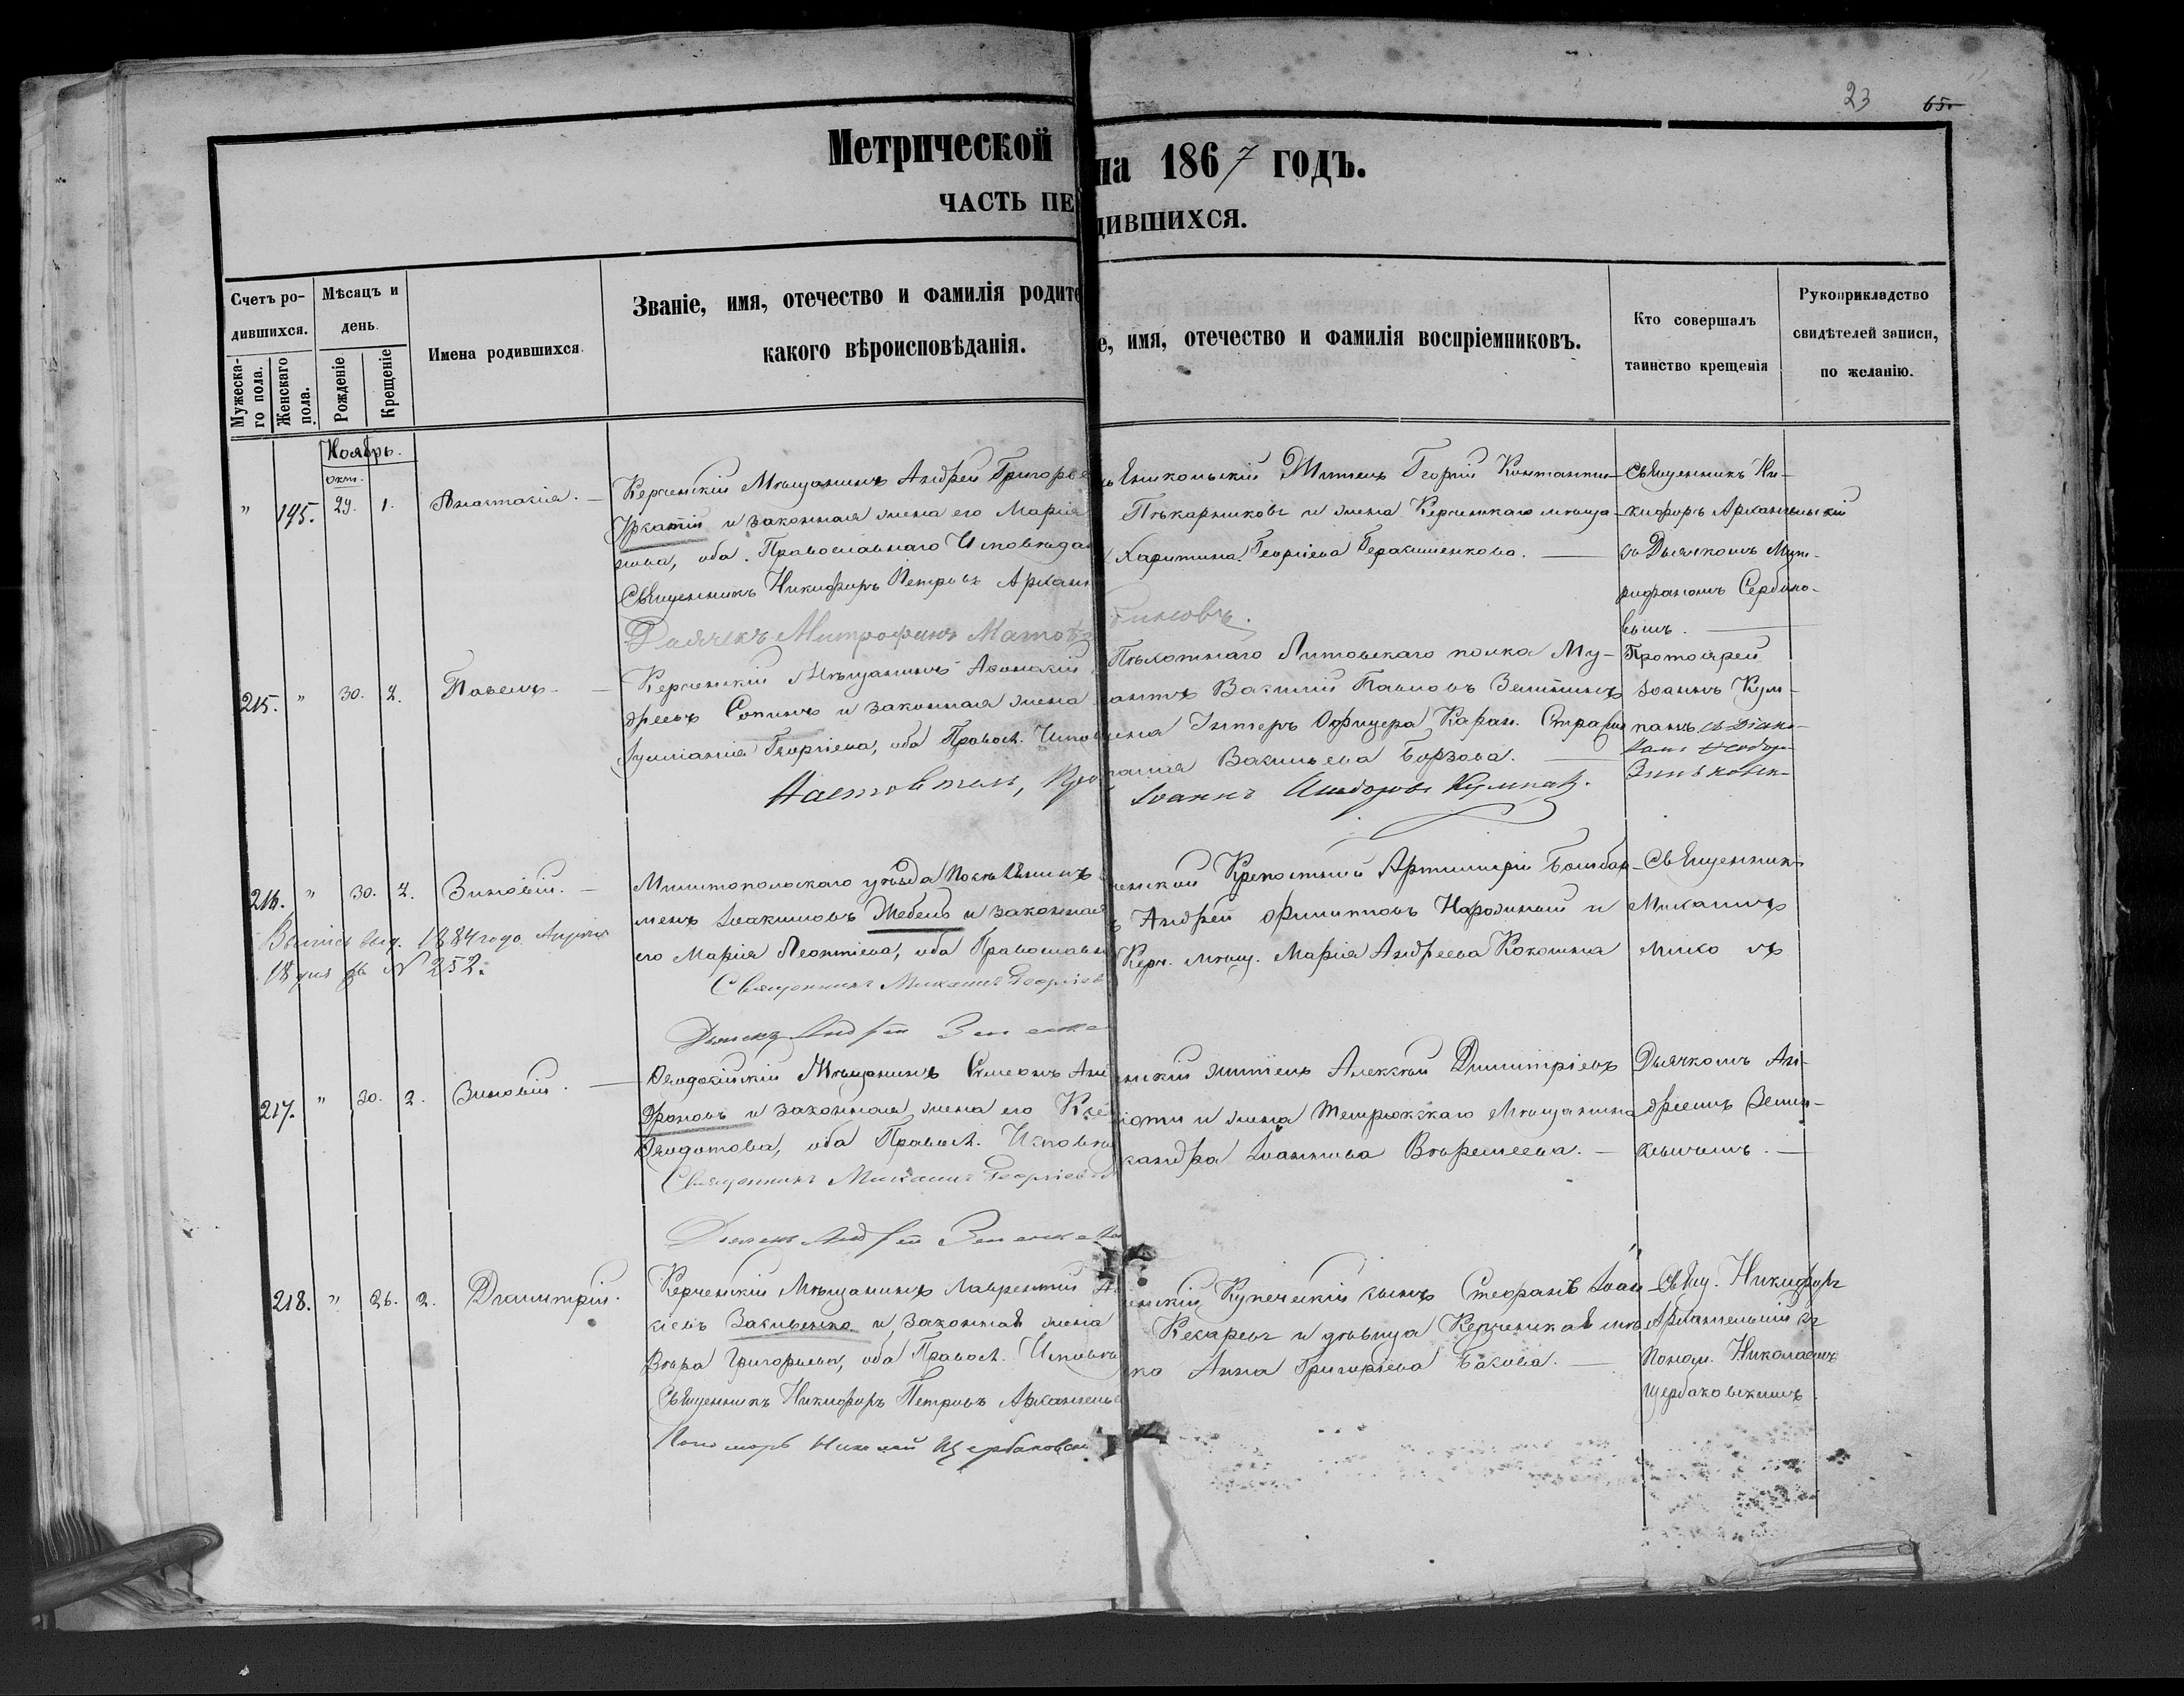 23 65.
Метрической на 1867 годъ.
ЧАСТЬ ПЕ ДИВШИХСЯ.
Счетъ ро-
дившихся.
Мужеска-
го пола.
Женскаго
пола.
Мѣсяцъ и
день.
Рожденіе
Крещеніе
Имена родившихся.
Званіе, имя, отечество и фамилія родите
какого вѣроисповѣданія.
е, имя, отечество и фамилія воспріемниковъ.
Кто совершалъ
таинство крещенія
Рукоприкладство
свидѣтелей записи,
по желанію.
Ноябрь.
окт.
" 195. 29. 1. Анастасія.
Керченскій Мѣщанинъ Андрей Григорье
и законная жена его Марія
нова, оба Православнаго Исповѣда
Священникъ Никифоръ Петровъ Архан
Дьячекъ Митрофанъ
Еникольскій Житель Георгій Константи-
Пѣкарниковъ и жена Керченскаго мѣща-
Харитина Георгіева Герасименкова.
Священникъ Ни-
кифоръ Архангельскій
съ Дьячкомъ Мит-
рофаномъ Сербино-
вымъ.
215. " 30. 2. Павелъ.
Керченскій Мѣщанинъ Аѳанасій
дреевъ Сопинъ и законная жена
Іуліанія Георгіева, оба Правосл. Испов
Настоятель, Про
Пѣхотнаго Литовскаго полка Му-
антъ Василій Павловъ
жена Унтеръ Офицера Каран. Стражи
Васильева Борзова.
Іоаннъ Кумпанъ.
Протоіерей
Іоаннъ Кум-
панъ съ Діако-
216. " 30. 2. Зиновій.
Выпись выд. 1884 года Апрѣля
18 дня за N 252.
Милитопольскаго уѣзда Поселянинъ
менъ Іоакимовъ Жебель и законная
его Марія Леонтіева, оба Православн
Священникъ Михаилъ Георгіев
Дьячекъ Андрей
ченской Крепостной Артиллеріи Бомбар-
Андрей Филиповъ Народный и
Керч. мѣщ. Марія Андреева Кокошина
Священникъ
Михаилъ
съ
217. " 30. 2. Зиновій.
Ѳеодосійскій Мѣщанинъ Симеонъ
и законная жена его
Ѳеодотова, оба Правосл. Исповѣ
Священникъ Михаилъ Георгіев
Дьячекъ Андрей
енскій житель Алексѣй Димитріевъ
и жена Темрюкскаго Мѣщанина
сандра Іоаннова
Дьячкомъ Ан-
дреемъ Зелин-
218. " 26. 2. Димитрій.
Керченскій Мѣщанинъ Лаврентій
сіевъ Васильенко и законная жена
Вѣра Григорьева, оба Правосл. Исповѣ
Священникъ Никифоръ Петровъ Архангель
Пономорь Николай Щербаковск
енскій Купеческій сынъ Стефанъ Іоан-
и дѣвица Керченская
Анна Григоріева Бакова.
Свящ. Никифоръ
Архангельскій съ
Поном. Николаемъ
Щербаковскимъ.